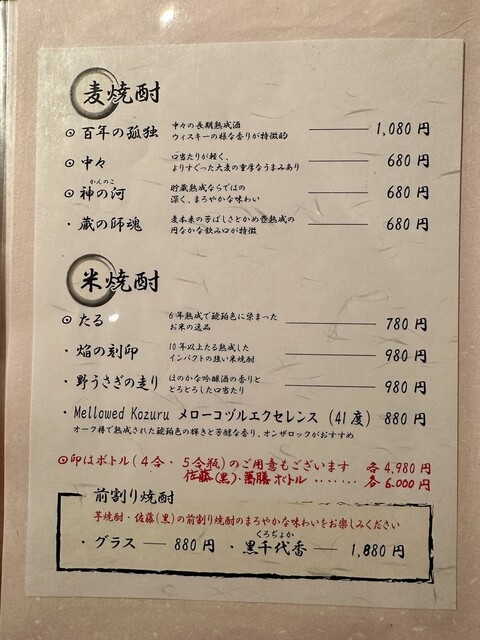 麦焼酎
⊙百年の孤独 中々の長期熟成酒 1,080円
ウィスキーの様な香りが特徴的
⊙中々 口当たりが軽く、 680円
よりすぐった大麦の重厚なうまみあり
かんのこ
⊙神の河 貯蔵熟成ならではの 680円
深く、まろやかな味わい
・蔵の師魂 麦本来の芳ばしさとかめ壺熟成の 680円
円なかな飲み口が特徴
米焼酎
⊙たる 6年熟成で琥珀色に染まった 780円
お米の逸品
・焔の刻印 10年以上たる熟成した 980円
インパクトの強い米焼酎
・野うさぎの走り ほのかな吟醸酒の香りと 980円
とろとろした口当たり
・Mellowed Kozuru メローコヅルエクセレンス (41度) 880円
オーク樽で熟成された琥珀色の輝きと芳醇な香り、オンザロックがおすすめ
⊙印はボトル(4合・5合瓶)のご用意もございます 各4,980円
佐藤(黒)・萬膳ボトル ・・・・・・・ 各6,000円
前割り焼酎
芋焼酎・佐藤(黒)の前割り焼酎のまろやかな味わいをお楽しみください
くろぢょか
・グラス ― 880円 ・黒千代香 ― 1,880円